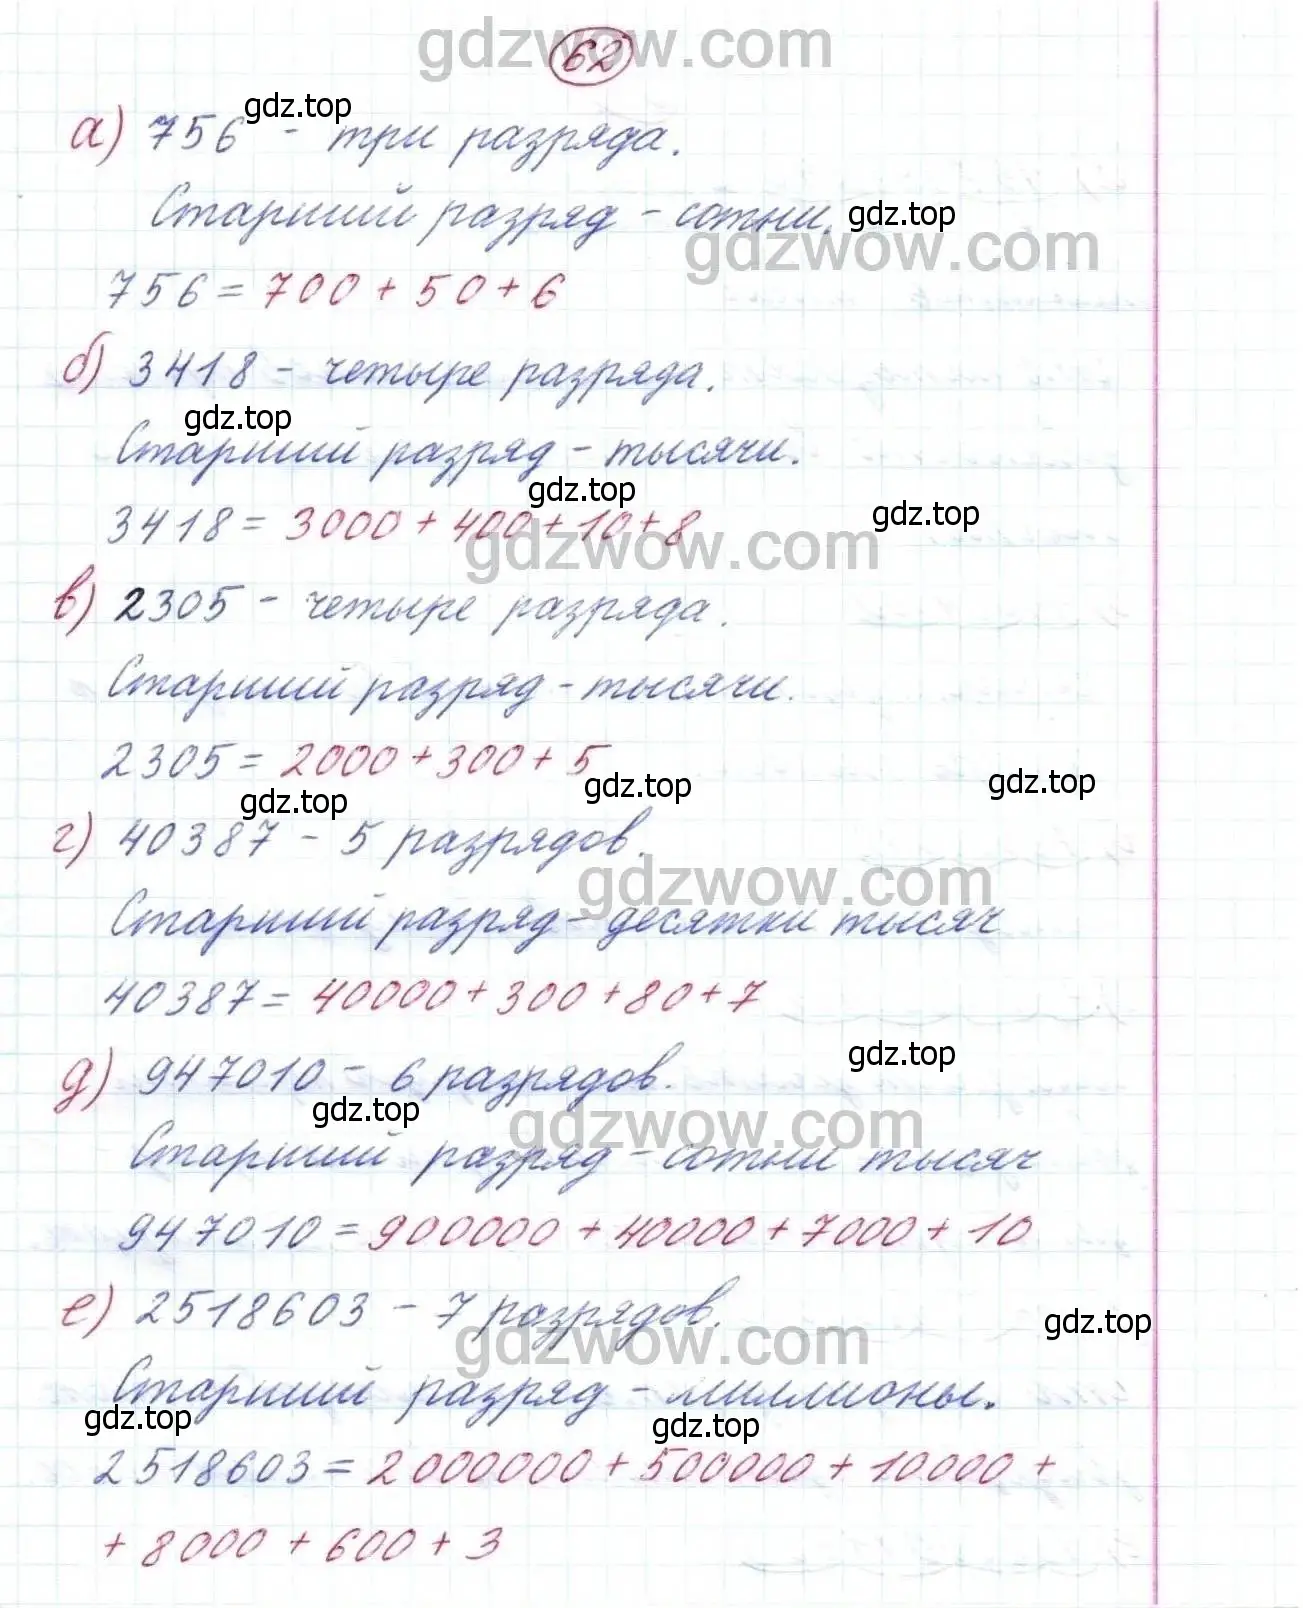 gdzwow.com
62
gdz.top
а) 756 - три разряда.
Старший разряд - сотни.
gdz.top
gdzwow.com
756 = 700 + 50 + 6
б) 3418 - четыре разряда.
gdz.top
Старший разряд - тысячи.
gdz.top
gdz.top
3418 = 3000 + 400 + 10 + 8
gdzwow.com
в) 2305 - четыре разряда.
Старший разряд - тысячи.
2305 = 2000 + 300 + 5
gdz.top
gdz.top
gdz.top
г) 40387 - 5 разрядов.
gdzwow.com
Старший разряд - десятки тысяч
40387 = 40000 + 300 + 80 + 7
gdz.top
д) 947010 - 6 разрядов.
gdz.top
gdzwow.com
Старший разряд - сотни тысяч
947010 = 900000 + 40000 + 7000 + 10
е) 2518603 - 7 разрядов.
gdz.top
gdzwow.com
Старший разряд - миллионы.
gdz.top
gdz.top
2518603 = 2000000 + 500000 + 10000 +
+ 8000 + 600 + 3